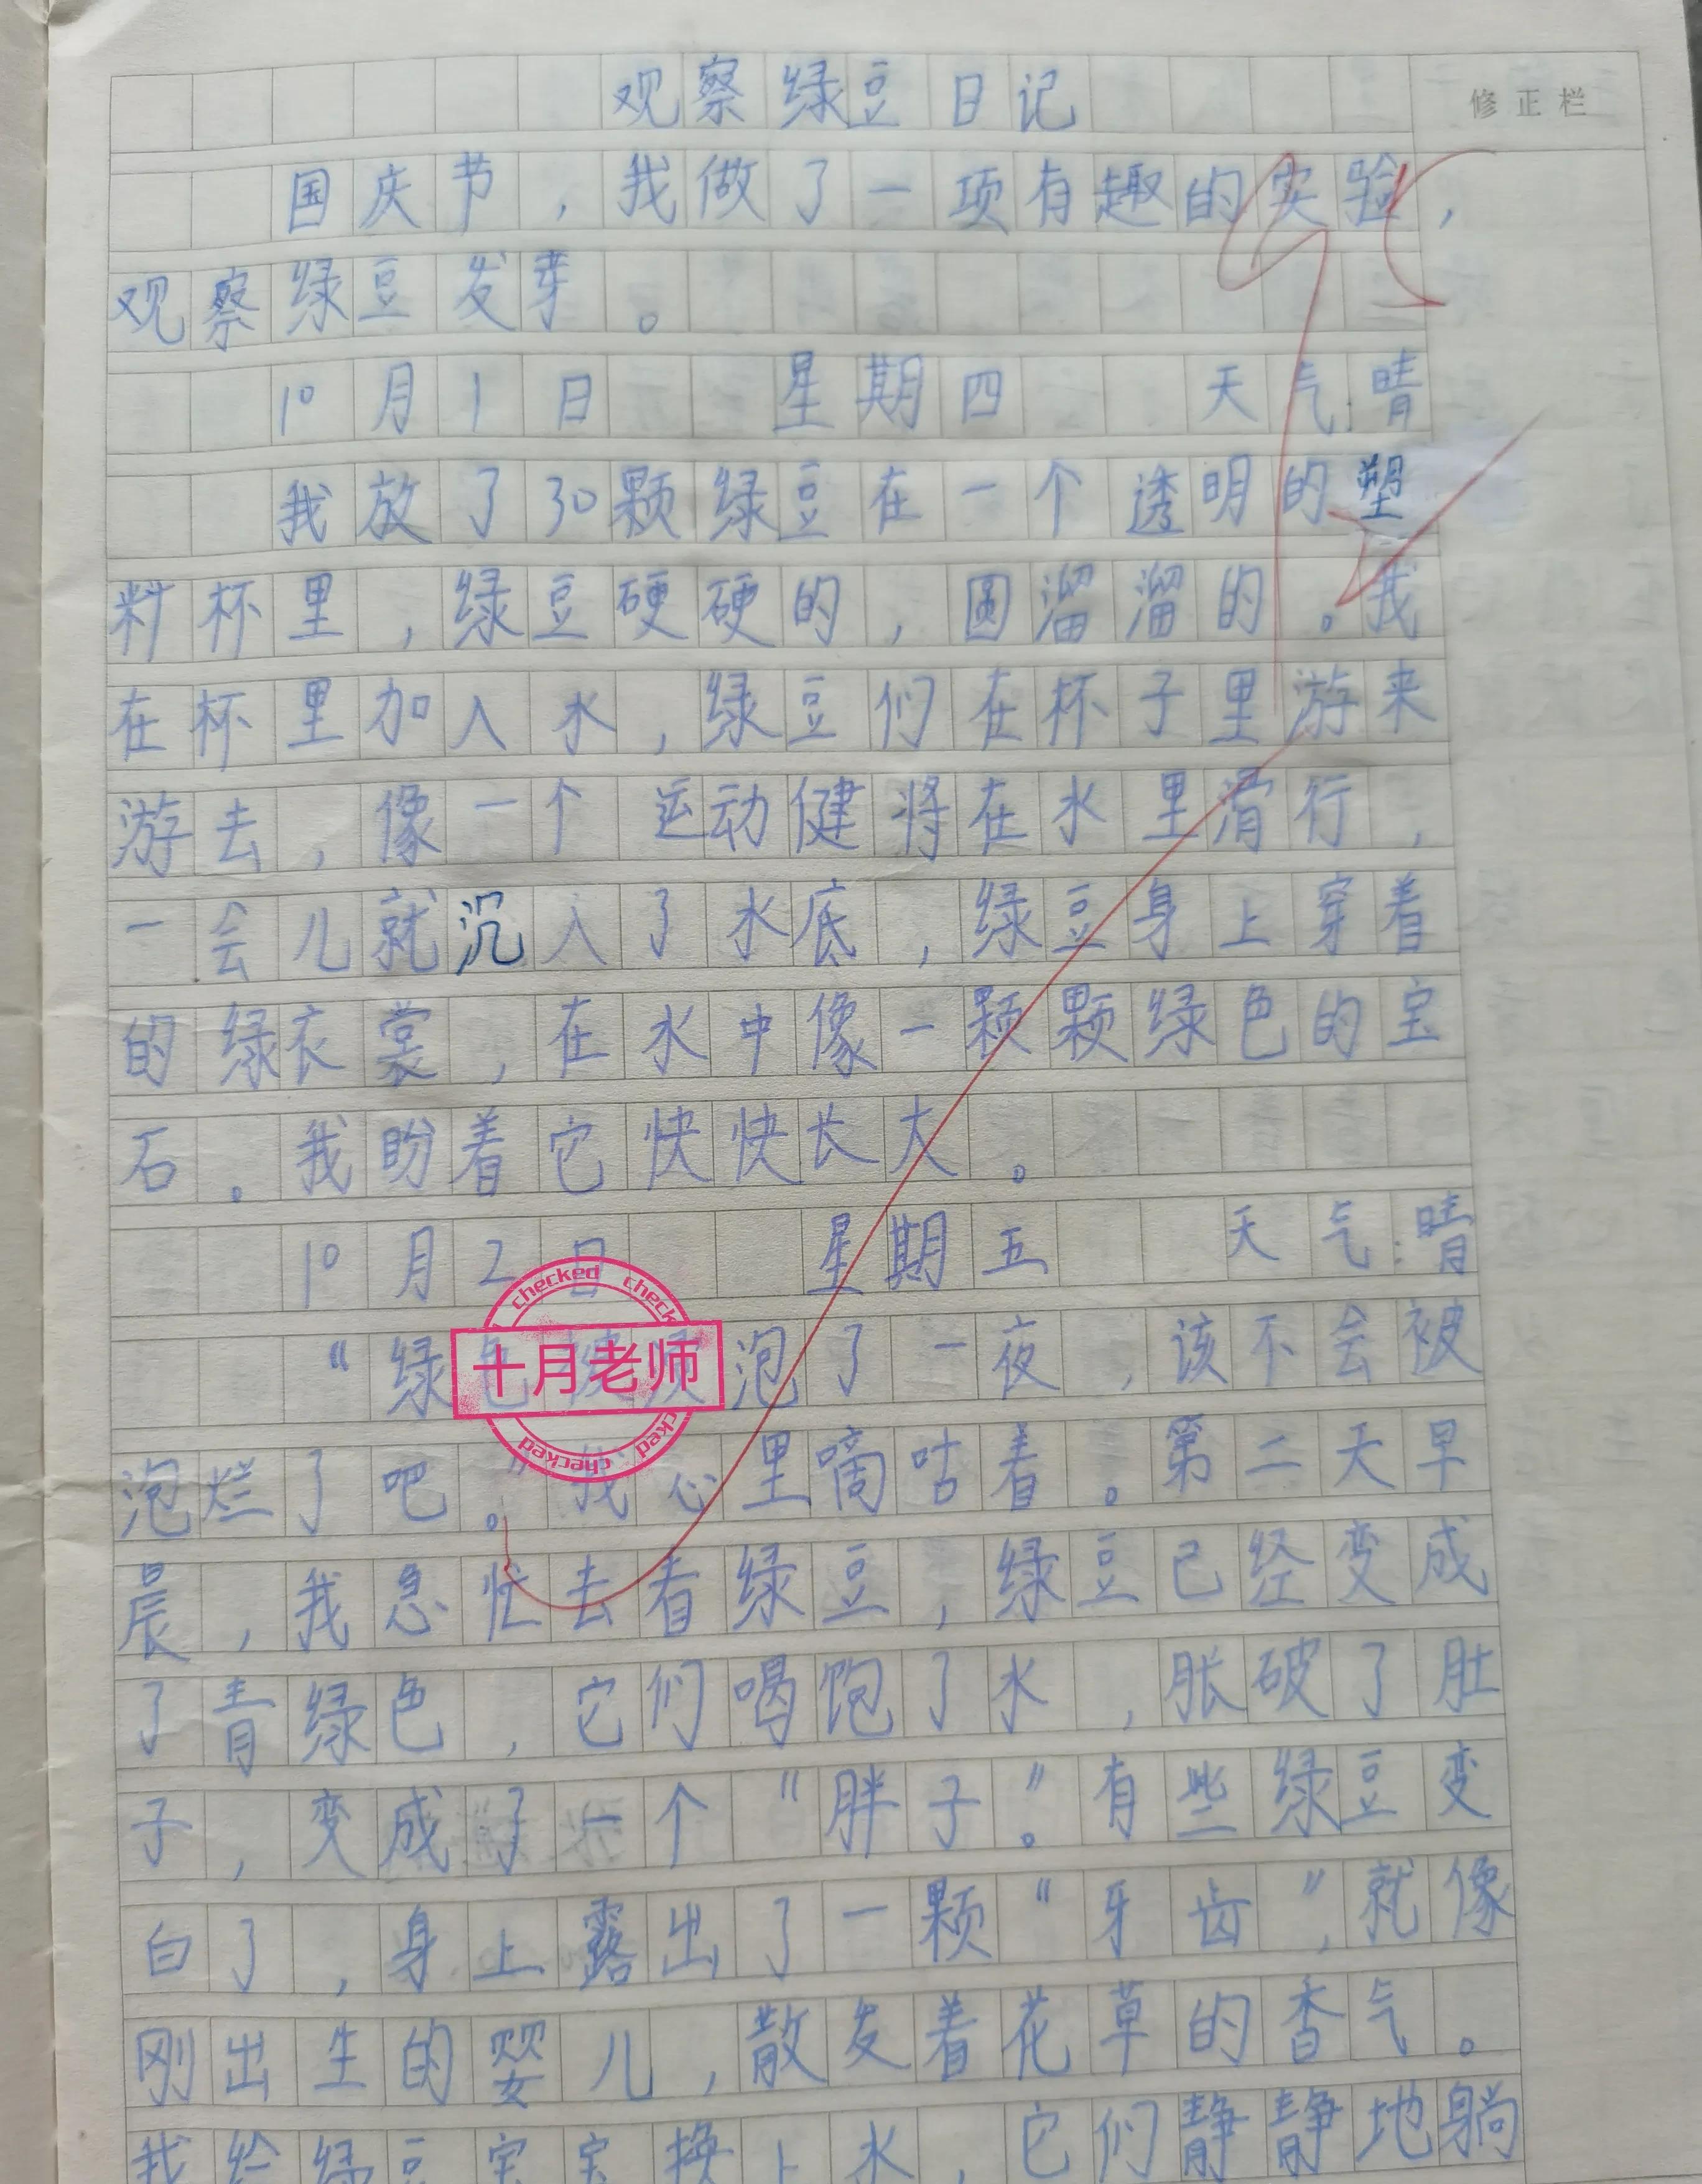 观察绿豆日记
修正栏
国庆节，我做了一项有趣的实验，
观察绿豆发芽。
10月1日 星期四 天气:晴
我放了30颗绿豆在一个透明的塑
料杯里，绿豆硬硬的，圆溜溜的。我
在杯里加入水，绿豆们在杯子里游来
游去，像一个运动健将在水里滑行，
一会儿就沉入了水底，绿豆身上穿着
的绿衣裳，在水中像一颗颗绿色的宝
石。我盼着它快快长大。
10月2日 星期五 天气:晴
“绿色 泡了一夜，该不会被
checked check
十月老师
cked checked
泡烂了吧。”我心里嘀咕着。第二天早
晨，我急忙去看绿豆，绿豆已经变成
了青绿色，它们喝饱了水，胀破了肚
子，变成了一个“胖子。”有些绿豆变
白了，身上露出了一颗“牙齿”，就像
刚出生的婴儿，散发着花草的香气。
我给绿豆宝宝换上水，它们静静地躺